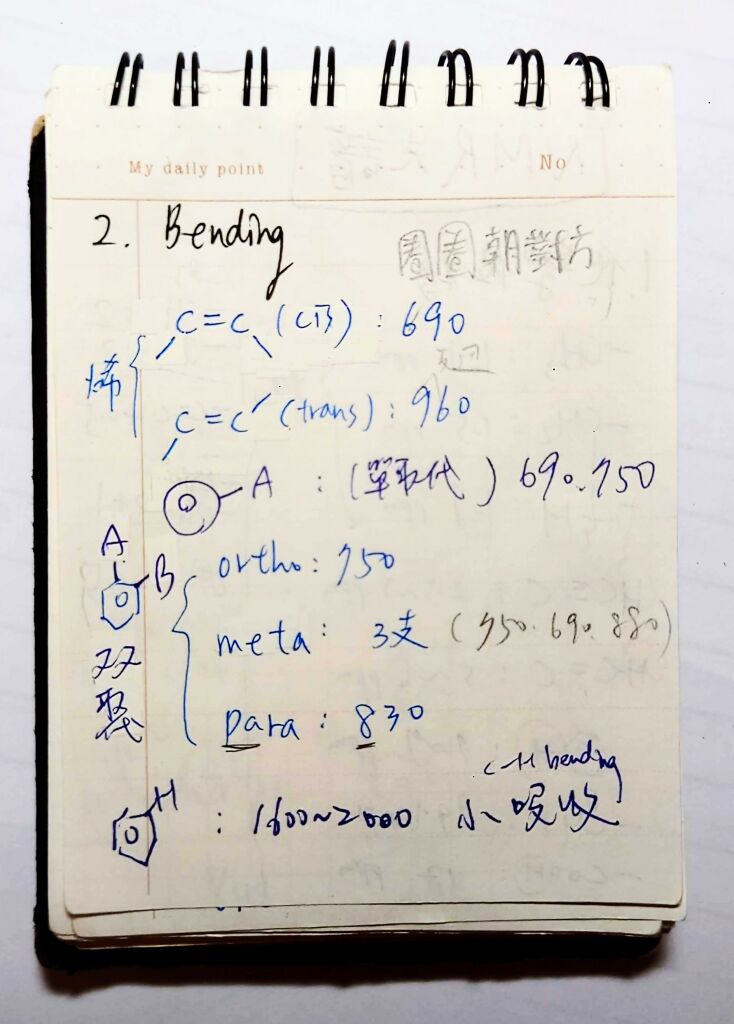 My daily point No
2. Bending
圈圈朝對方
C=C (cis) : 690
烯
C=C (trans) : 960
A : (單取代) 690.750
A
B
ortho: 750
meta: 3支 (750.690.880)
双
para: 830
H : 1600~2000 小吸收
C-H bending